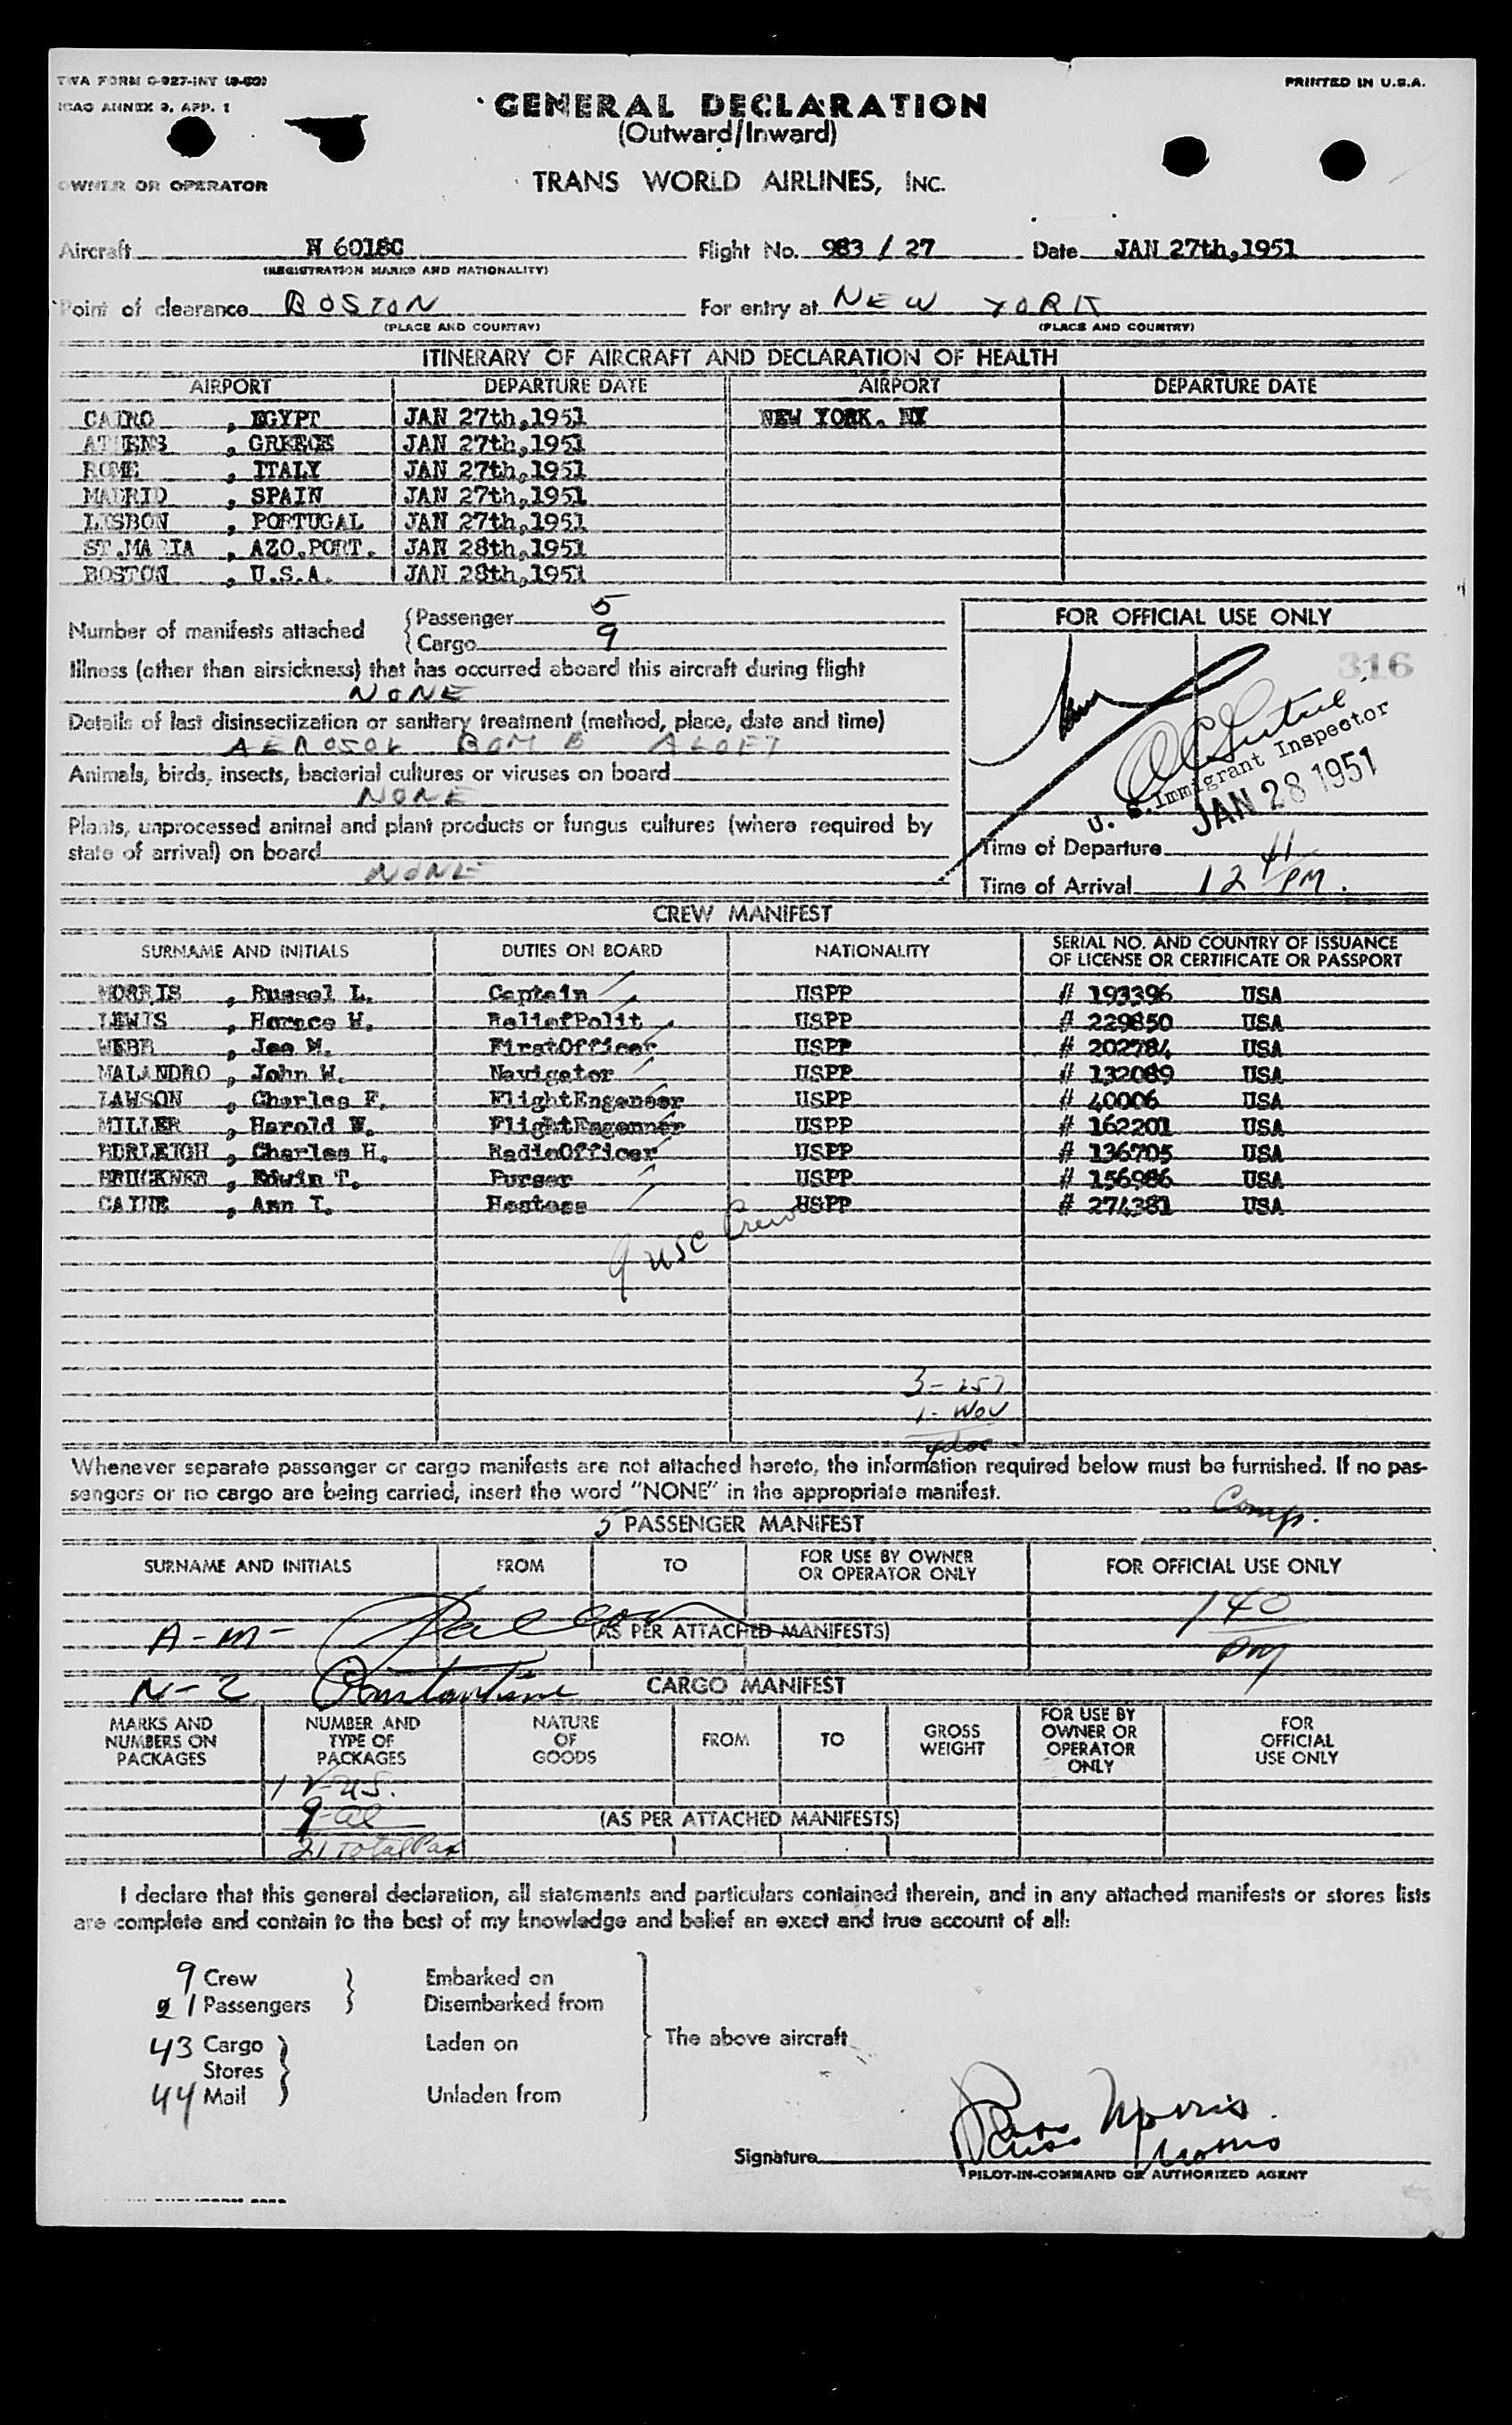 TWA FORM C-927-INT (9-50)
PRINTED IN U.S.A.
ICAO ANNEX 9, APP. 1
GENERAL DECLARATION
(Outward/Inward)
OWNER OR OPERATOR
TRANS WORLD AIRLINES, INC.
Aircraft N 6018C Flight No. 983 / 27 Date JAN 27th,1951
(REGISTRATION MARKS AND NATIONALITY)
Point of clearance BOSTON For entry at NEW YORK
(PLACE AND COUNTRY) (PLACE AND COUNTRY)
ITINERARY OF AIRCRAFT AND DECLARATION OF HEALTH
AIRPORT DEPARTURE DATE AIRPORT DEPARTURE DATE
CAIRO , EGYPT JAN 27th,1951 NEW YORK. NY
ATHENS , GREECE JAN 27th,1951
ROME , ITALY JAN 27th,1951
MADRID , SPAIN JAN 27th,1951
LISBON , PORTUGAL JAN 27th,1951
ST.MARIA , AZO.PORT. JAN 28th,1951
BOSTON , U.S.A. JAN 28th,1951
Number of manifests attached
Passenger 5
Cargo 9
FOR OFFICIAL USE ONLY
316
Illness (other than airsickness) that has occurred aboard this aircraft during flight
NONE
Details of last disinsectization or sanitary treatment (method, place, date and time)
AEROSOL BOMB ALOFT
Animals, birds, insects, bacterial cultures or viruses on board
NONE
Plants, unprocessed animal and plant products or fungus cultures (where required by
state of arrival) on board
NONE
U. S. Immigrant Inspector
JAN 28 1951
Time of Departure
Time of Arrival 12 41 PM.
CREW MANIFEST
SURNAME AND INITIALS DUTIES ON BOARD NATIONALITY SERIAL NO. AND COUNTRY OF ISSUANCE
OF LICENSE OR CERTIFICATE OR PASSPORT
MORRIS , Russel L. Captain USPP # 193396 USA
LEWIS , Horace W. ReliefPolit USPP # 229850 USA
WEBB , Joe M. FirstOfficer USPP # 202784 USA
MALANDRO , John W. Navigator USPP # 132089 USA
LAWSON , Charles F. FlightEngeneer USPP # 40006 USA
MILLER , Harold W. FlightEngenner USPP # 162201 USA
BURLEIGH , Charles H. RadioOfficer USPP # 136705 USA
BRUCKNER , Edwin T. Purser USPP # 156986 USA
CAINE , Ann I. Hostess USPP # 274381 USA
9 USC Crew
3- 257
1- Wov
Whenever separate passenger or cargo manifests are not attached hereto, the information required below must be furnished. If no pas-
sengers or no cargo are being carried, insert the word "NONE" in the appropriate manifest.
Comp.
5 PASSENGER MANIFEST
SURNAME AND INITIALS FROM TO FOR USE BY OWNER
OR OPERATOR ONLY FOR OFFICIAL USE ONLY
140
PM
A-M-
(AS PER ATTACHED MANIFESTS)
N-2 Constantine
CARGO MANIFEST
MARKS AND
NUMBERS ON
PACKAGES
NUMBER AND
TYPE OF
PACKAGES
NATURE
OF
GOODS
FROM
TO
GROSS
WEIGHT
FOR USE BY
OWNER OR
OPERATOR
ONLY
FOR
OFFICIAL
USE ONLY
12-US.
9-al
21 Total Pax
(AS PER ATTACHED MANIFESTS)
I declare that this general declaration, all statements and particulars contained therein, and in any attached manifests or stores lists
are complete and contain to the best of my knowledge and belief an exact and true account of all:
9 Crew Embarked on
21 Passengers Disembarked from
43 Cargo Laden on The above aircraft
Stores
44 Mail Unladen from
Russ Morris
Russ Morris
Signature
PILOT-IN-COMMAND OR AUTHORIZED AGENT